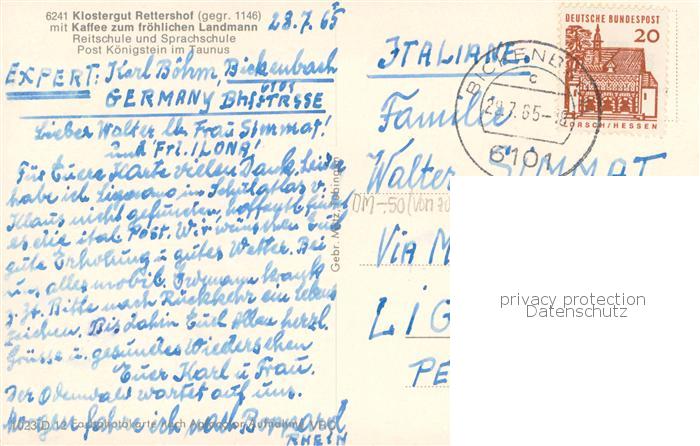 6241 Klostergut Rettershof (gegr. 1146)
mit Kaffee zum fröhlichen Landmann
Reitschule und Sprachschule
Post Königstein im Taunus
28.7.65
EXPERT: Karl Böhm, Bickenbach
6101
GERMANY Bhfstrasse
Lieber Walter Frau Simmat!
und Frl. ILONA!
Für Euere Karte vielen Dank, leider
habe ich im Schulatlas v.
Klaus nicht gefunden, hoffentl.
es die ital. Post. Wir wünschen Euch
gute Erholung u. gutes Wetter. Bei
uns alles mobil. krank
z. Zt. Bitte nach Rückkehr ein Lebens
zeichen. Bis dahin Euch Allen herzl.
Grüsse u. gesundes Wiedersehen
Euer Karl u. Frau.
Der Odenwald wartet auf uns.
Morgen fahre ich nach Boppard
RHEIN
Gebr. Metz, Tübingen
ITALIANE.
Familie
Walter SIMMAT
DM -.50
VIA M
LIG
PE
DEUTSCHE BUNDESPOST
20
LORSCH/HESSEN
BICKENB
c
29.7.65-18
6101
privacy protection
Datenschutz